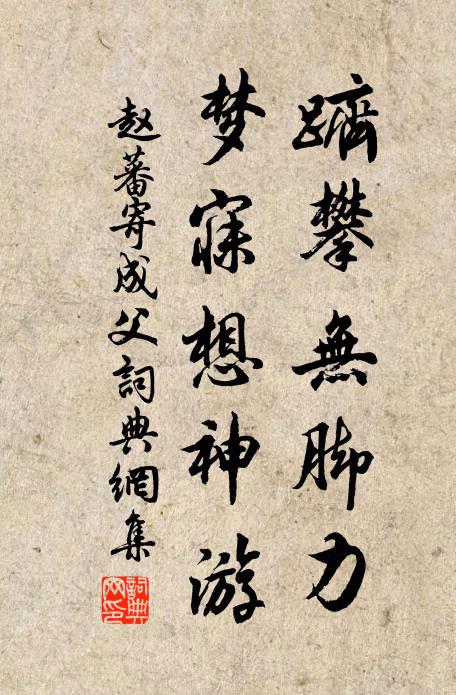 躋攀無脚力
梦寐想神游
赵蕃寄成父詞典網集
詞典网印